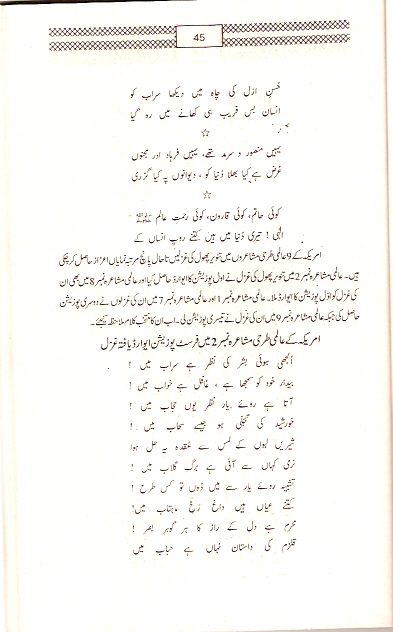 45
حسنِ ازل کی چاہ میں دیکھا سراب کو
انسان بس فریب ہی کھانے میں رہ گیا
☆
یہیں منصور و سرمد تھے، یہیں فرہاد اور مجنوں
غرض ہے کیا بھلا دُنیا کو، دیوانوں پہ کیا گزری
☆
کوئی حاتم، کوئی قارون، کوئی رحمتِ عالم ﷺ
الٰہی! تیری دُنیا میں ہیں کتنے روپ انساں کے
امریکہ کے 9 عالمی طرحی مشاعروں میں تنویر پھول کی غزلیں تا حال پانچ مرتبہ نمایاں اعزاز حاصل کر چکی
ہیں۔ عالمی مشاعرہ نمبر 2 میں تنویر پھول کی غزل نے اول پوزیشن کا ایوارڈ حاصل کیا اور عالمی مشاعرہ نمبر 8 میں بھی ان
کی غزل کو اوّل پوزیشن کا ایوارڈ ملا۔ عالمی مشاعرہ نمبر 1 اور عالمی مشاعرہ نمبر 7 میں ان کی غزلوں نے دوسری پوزیشن
حاصل کی جبکہ عالمی مشاعرہ نمبر 9 میں ان کی غزل نے تیسری پوزیشن لی۔ اب ان کا منتخب کلام ملاحظہ کیجئے۔
امریکہ کے عالمی طرحی مشاعرہ نمبر 2 میں فرسٹ پوزیشن ایوارڈ یافتہ غزل
اُلجھی ہوئی بشر کی نظر ہے سراب میں !
بیدار خود کو سمجھا ہے ، غافل ہے خواب میں !
آتا ہے روئے یار نظر یوں حجاب میں !
خورشید کی تجلّی ہو جیسے سحاب میں !
شیریں لبوں کے لمس سے عُقدہ یہ حل ہوا
نرمی کہاں سے آئی ہے برگِ گلاب میں !
تشبیہ روئے یار سے میں دُوں تو کس طرح !
کتنے عیاں ہیں داغ رُخِ ماہتاب میں!
محرم ہے دل کے راز کا ہر گوہرِ بصر !
قلزم کی داستان نہاں ہے حباب میں